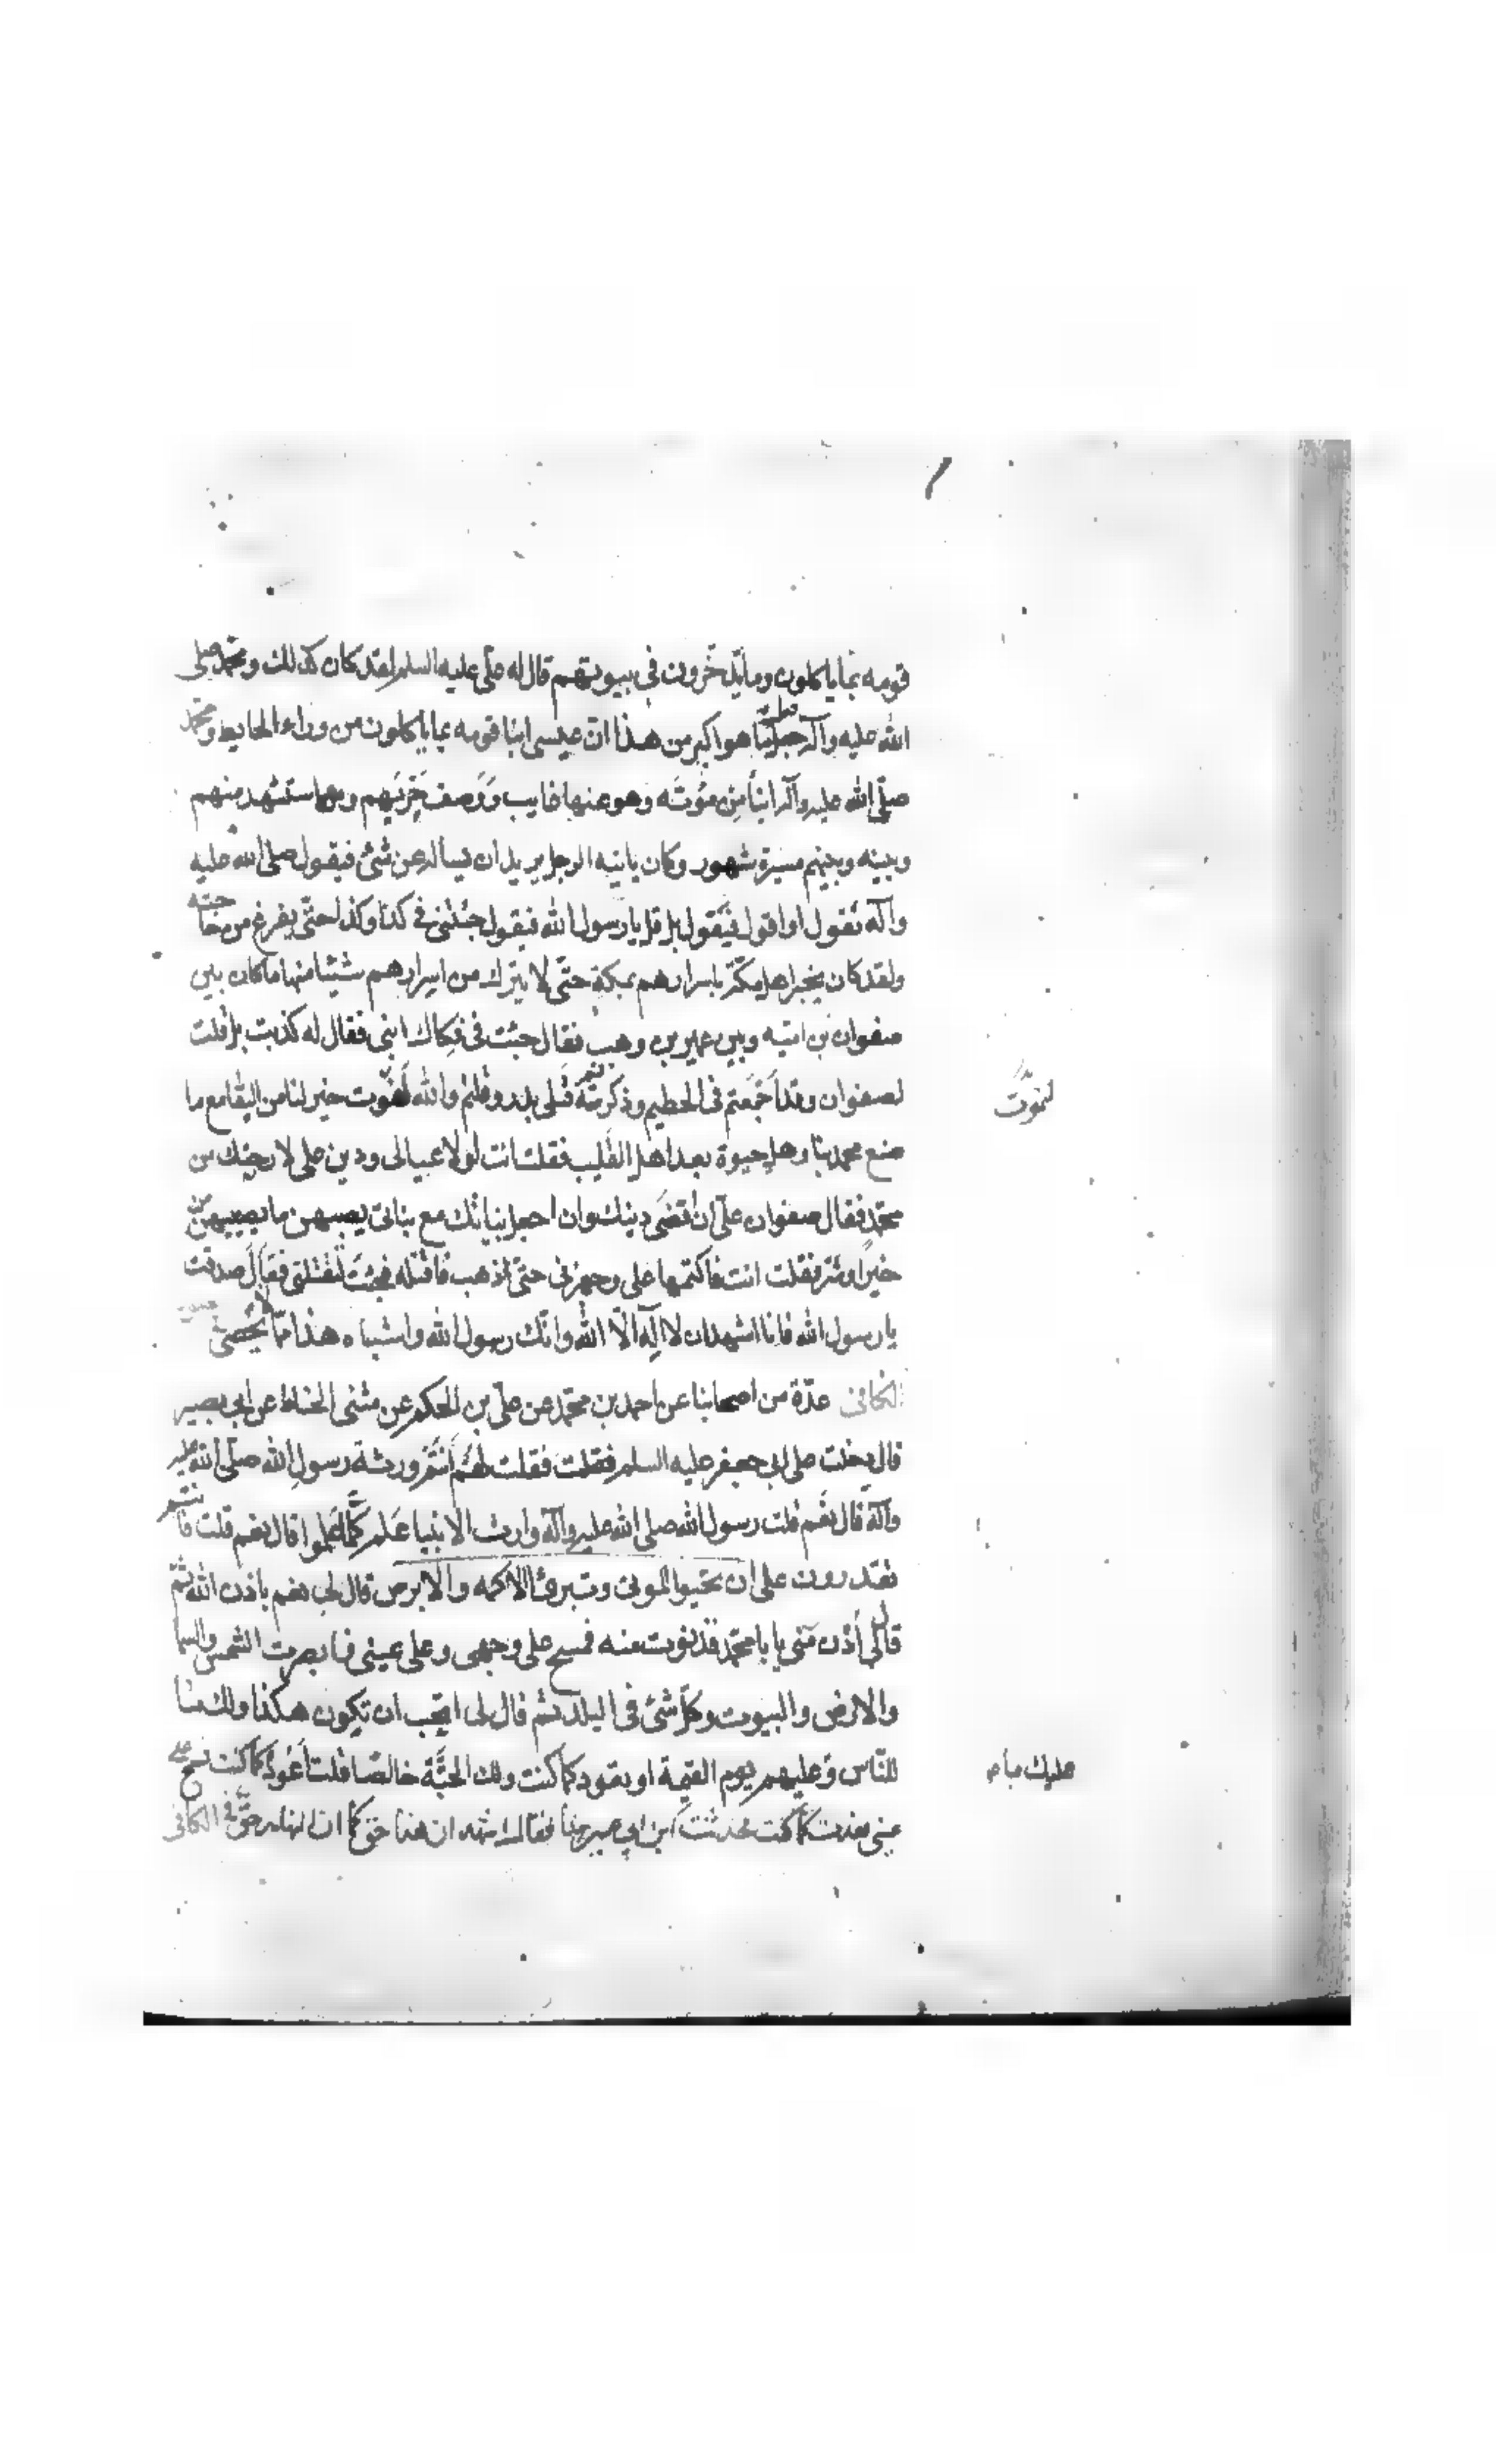 قومه بما ياكلون وما يدّخرون في بيوتهم قال له علي عليه السلم لقد كان كذلك ومحمد صلى
الله عليه وآله هو اكبر من هذا ان عيسى انبا قومه بما ياكلون من وراء الحايط ومحمد
صلى الله عليه وآله انبأ من مؤته وهو عنها غايب ووصف حربهم ومن استشهد منهم
وبينه وبينهم مسيرة شهور وكان ياتيه الرجل يريد ان يساله عن شئ فيقول صلى الله عليه
وآله تقول او اقول فيقول بل قل يا رسول الله فيقول جئتني في كذا وكذا حتى يفرغ من حاجته
ولقد كان يخبر اهل مكة باسرارهم بمكة حتى لا يترك من اسرارهم شيئا منها ما كان بين
صفوان بن اميه وبين عمير بن وهب فقال جئت في فكاك ابني فقال له كذبت بل قلت
لصفوان وقد اجتمعتم في الحطيم وذكرتم قتلى بدر وقلتم والله للموت خير لنا من البقا مع ما
صنع محمد بنا وهل حيوة بعد اهل القليب فقلت انت لولا عيالي ودين علي لارحتك من
محمد فقال صفوان علي ان اقضي دينك وان اجعل بناتك مع بناتي يصيبهن ما يصيبهن من
خير او شر فقلت انت فاكتمها علي وجهزني حتى اذهب فاقتله فجئت لتقتلني فقال صدقت
يا رسول الله فانا اشهد ان لا اله الا الله وانك رسول الله واشباه هذا مما لا يحصى
الكافي عدّة من اصحابنا عن احمد بن محمّد عن علي بن الحكم عن مثنى الحناط عن ابي بصير
قال دخلت على ابي جعفر عليه السلم فقلت فقلت لهم انتم ورثة رسول الله صلى الله عليه
وآله قال نعم قلت رسول الله صلى الله عليه وآله وارث الانبيا علم كلما علموا قال نعم قلت فانتم
تقدرون على ان تحيوا الموتى وتبرئ الاكمه والابرص قال لي نعم باذن الله ثم
قال لي أدن مني يا با محمد فدنوت منه فمسح على وجهي وعلى عيني فابصرت الشمس والسما
والارض والبيوت وكل شئ في البلد ثم قال لي اتحب ان تكون هكذا ولك ما
للناس وعليهم يوم القيمة او تعود كما كنت ولك الجنة خالصا قلت أعود كما كنت فمسح على
عيني فعدت كما كنت فحدثت ابن ابي عمير هذا فقال اشهد ان هذا حق كما ان النهار حق في الكافي
لنموت
عليك ما